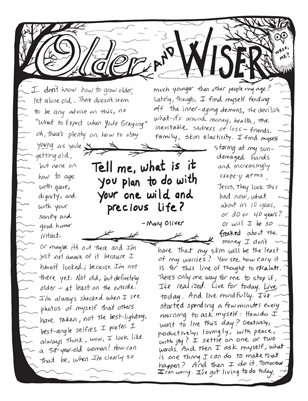 Older AND WISER
WHOO, ME?
I don't know how to grow older,
let alone old. There doesn't seem
to be any advice on this, no
"What to Expect When You're Graying"
oh, there's plenty on how to stay
young as you're
getting old,
but none on
how to age
with grace,
dignity, and
with your
sanity and
good humor
intact.
Or maybe it's out there and I'm
just not aware of it because I
haven't looked; because I'm not
there yet. Not old, but definitely
older - at least on the outside.
I'm always shocked when I see
photos of myself that others
have taken, not the best-lighting,
best-angle selfies I prefer. I
always think, wow, I look like
a 58-year-old woman! How can
that be, when I'm clearly so
Tell me, what is it
you plan to do with
your one wild and
precious life?
-Mary Oliver
much younger than other people my age?
Lately, though, I find myself fending
off the inner-aging demons, the dark
what-ifs around money, health, the
inevitable sadness of loss - friends,
family, skin elasticity. I find myself
staring at my sun-
damaged hands
and increasingly
crepey arms.
Jesus, they look this
bad now, what
about in 10 years,
or 20 or 40 years?
or will I be so
freaked about the
money I don't
have that my skin will be the least
of my worries? You see how easy it
is for this line of thought to escalate.
There's only one way for me to stop it,
I've realized. Live for today. Live
today. And live mindfully. I've
started spending a few minutes every
morning to ask myself: How do I
want to live this day? Creatively,
productively, lovingly, with peace,
with joy? I settle on one or two
words. And then I ask myself, what
is one thing I can do to make that
happen? And then I do it. Tomorrow
I can worry. I've got living to do today.